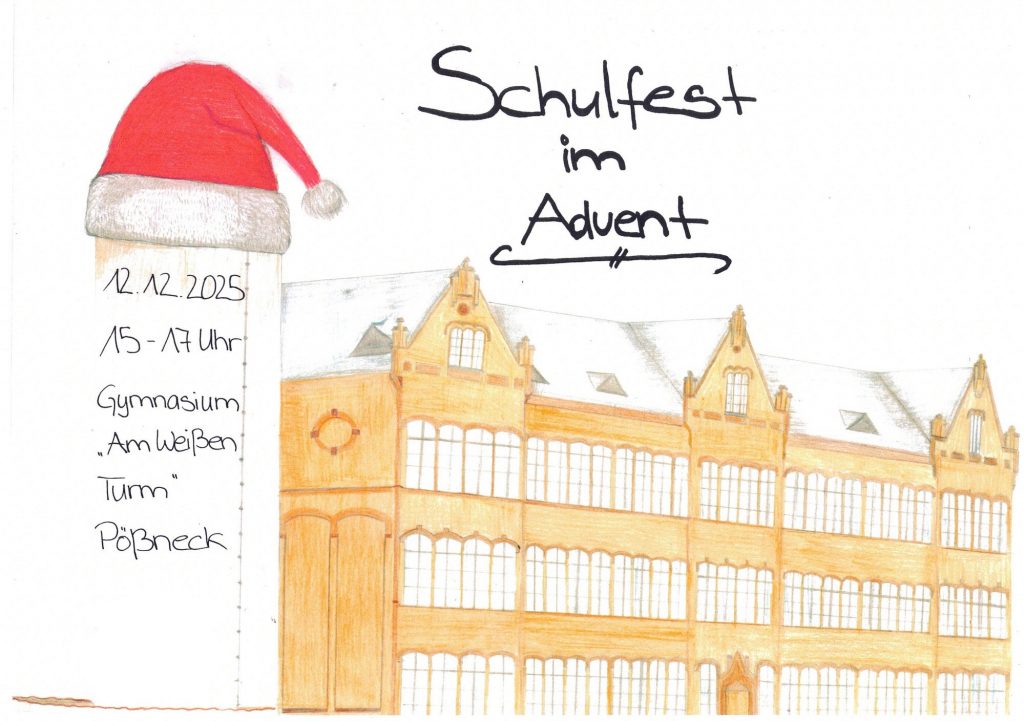 Schulfest
im
Advent
12.12.2025
15-17 Uhr
Gymnasium
„Am Weißen
Turm"
Pößneck